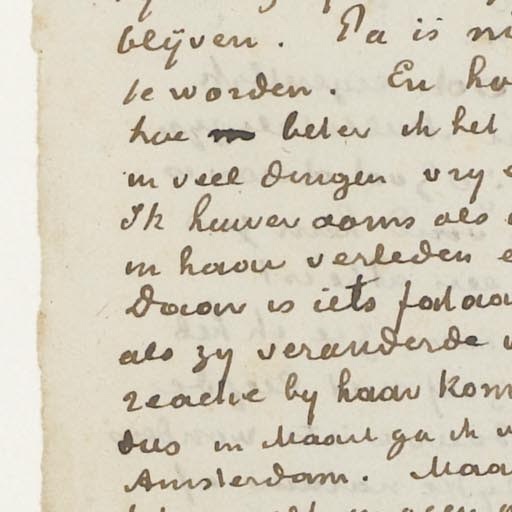 blijven. Pa is
te worden. En
hoe beter ik het
in veel dingen vry
Ik huiver soms als
in haar verleden
Daar is iets
als zy veranderde
reactie by haar kom
dus in Maart ga ik
Amsterdam. Maa